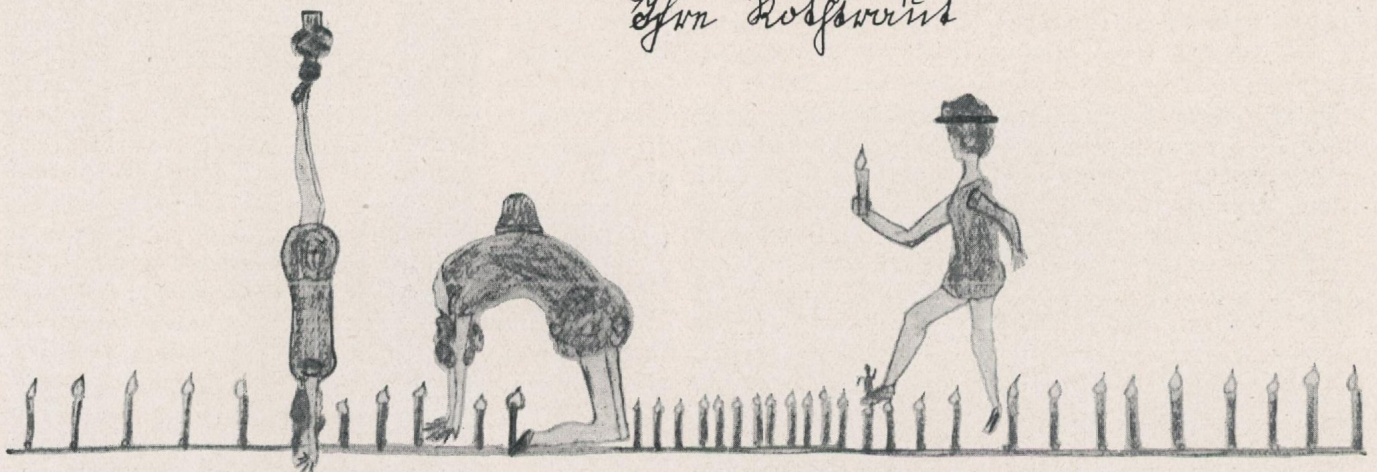 Ihre Rothtraut